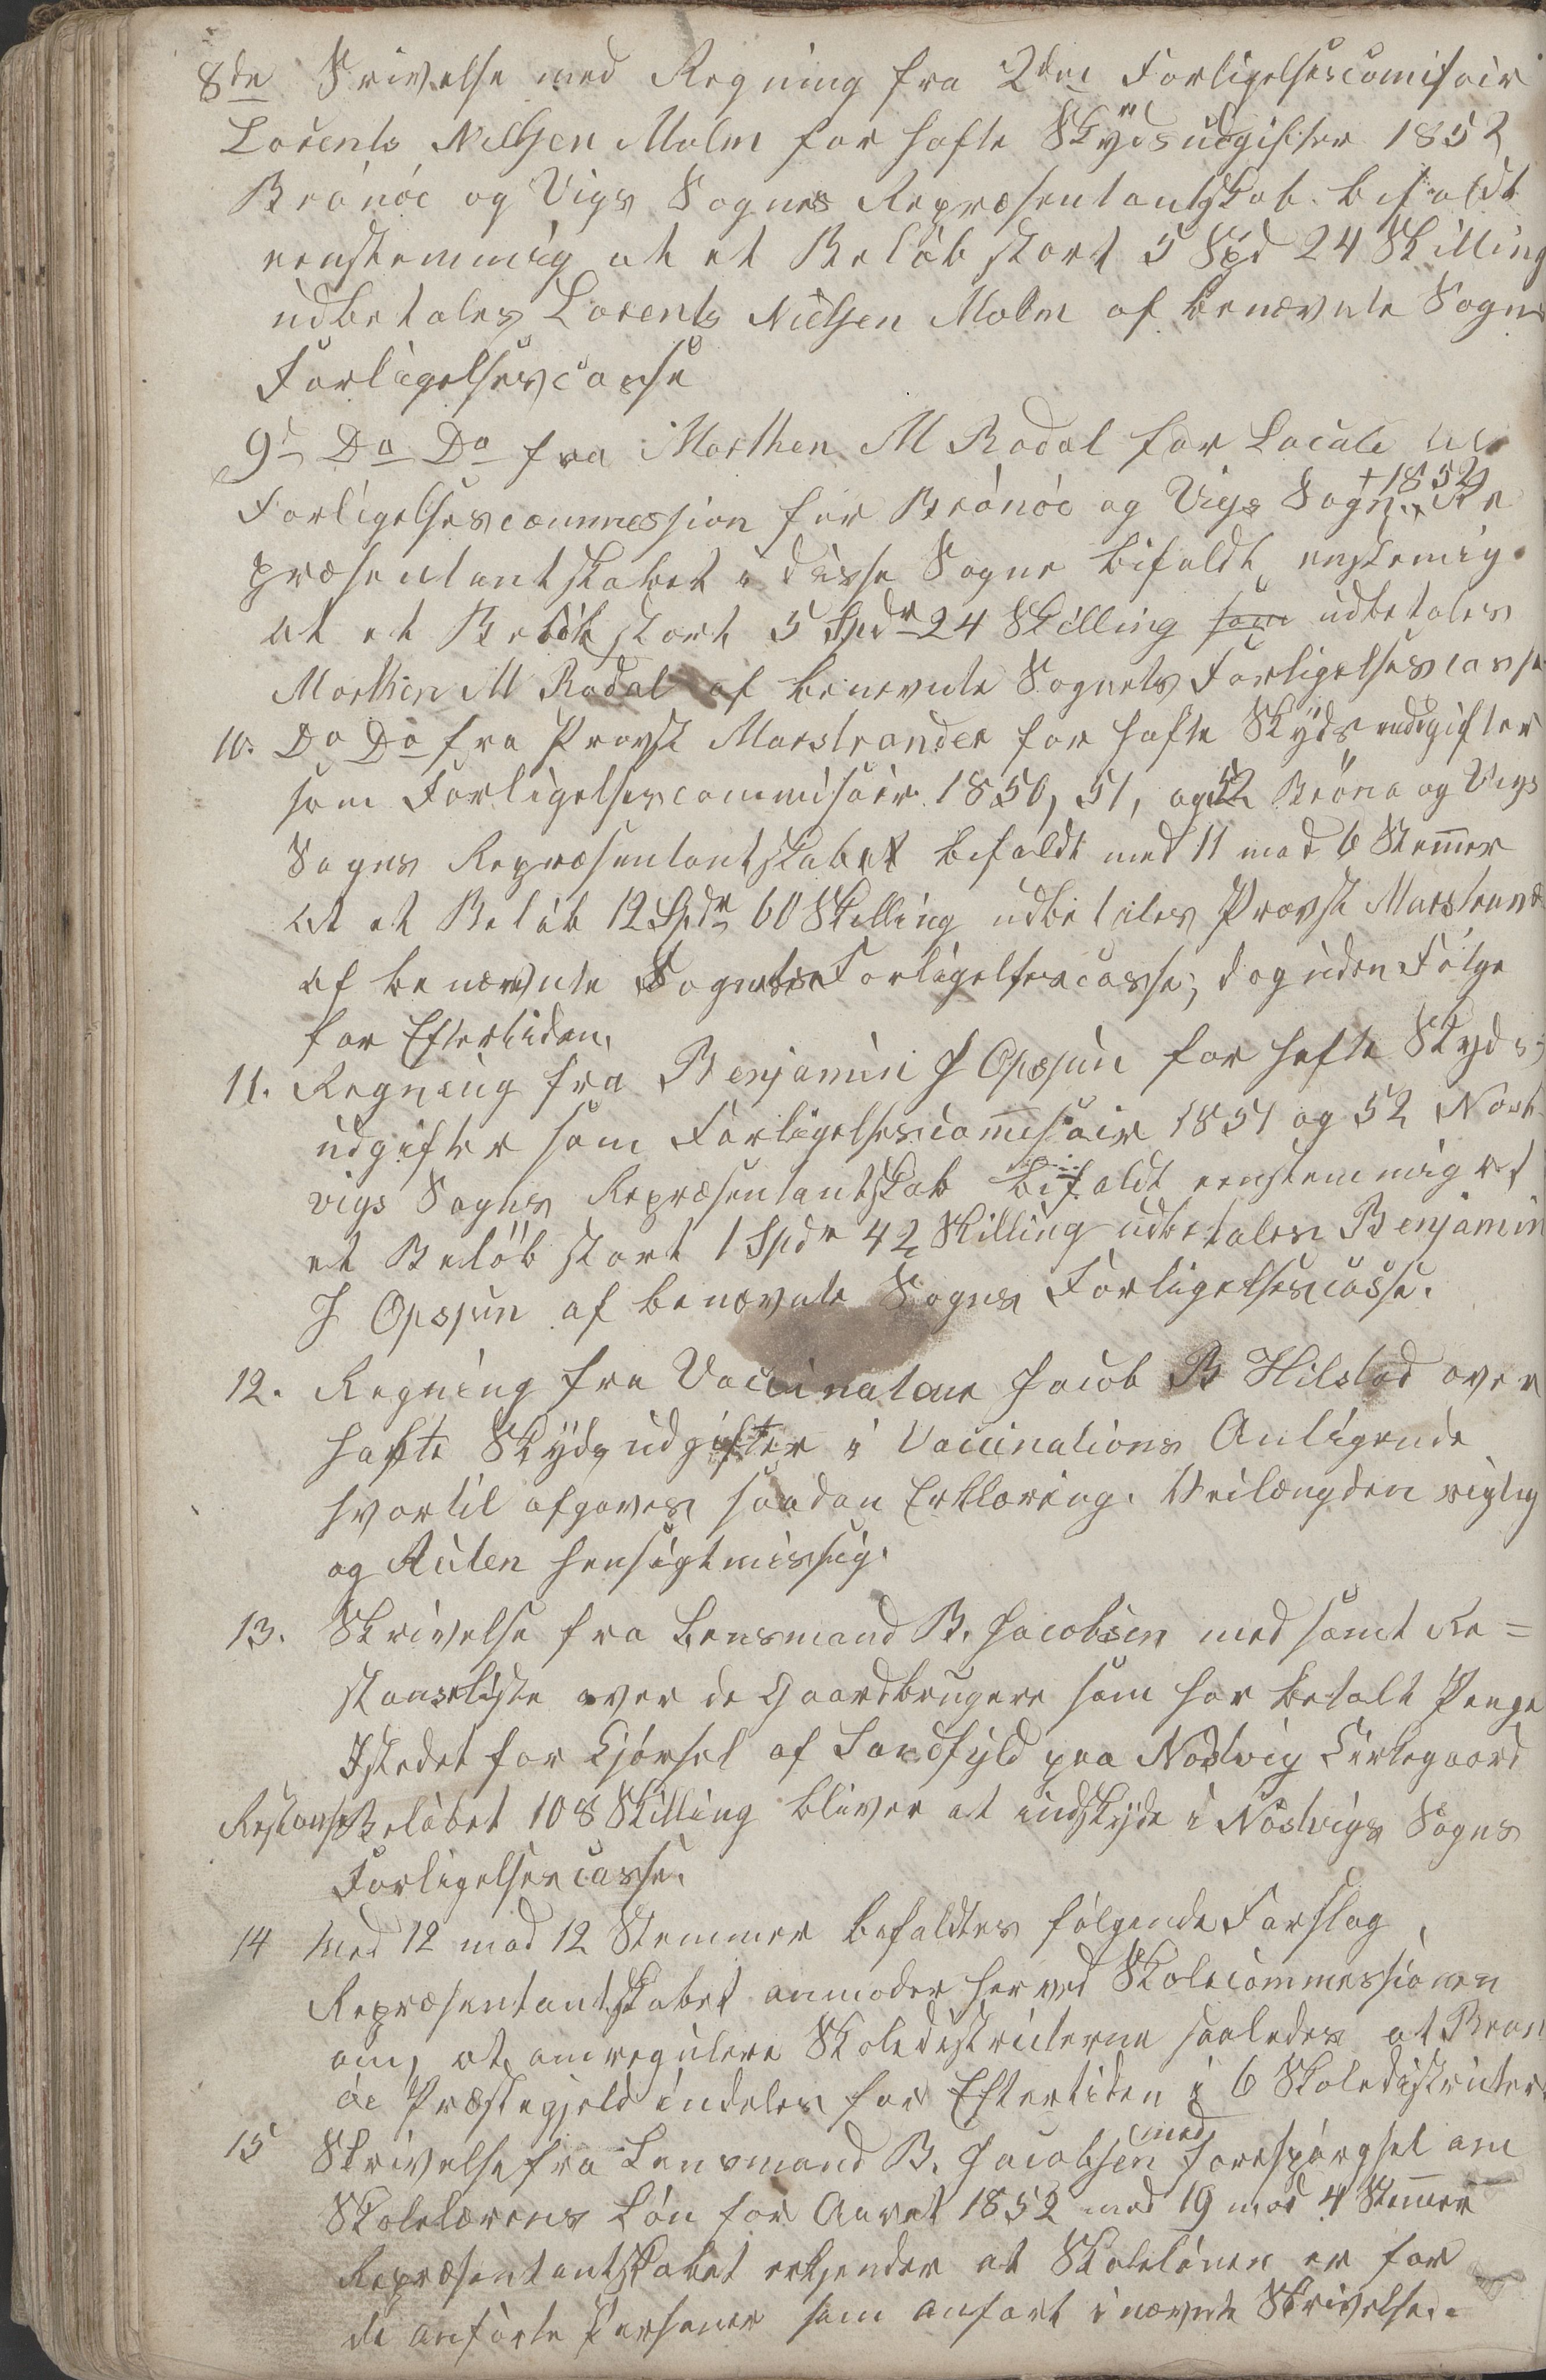 8de Srivelse med Regning fra 2den Forligelsescomisair
Lorents Nielsen Malm for hafte Skydsudgifter 1852
Brönöe og Vigs Sognes Repræsentantskab bifaldt
eenstemmig at et Belöb stort 5 Spd 24 Skilling
udbetales Lorents Nielsen Malm af benævnte Sogns
Forligelsescasse
9de Do Do fra Morthen M Rodal for Locale til
Forligelsescommession for Brönöe og Vigs Sogn. +1852 Re
præsentantskabet i disse Sogne bifaldt enstemig
at et Belöb stort 5 Spdr 24 Skilling som udbetales
Morthen M Rodal af benevnte Sognets Forligelsescasse
10. Do Do fra Provst Marstrander for hafte Skyds udgifter
som Forligelsescommisair 1850, 51, og 52 Bröna og Vigs
Sogns Repræsentantskabet bifaldt med 11 mod 6 Stemer
at et Belöb 12 Spdr 60 Skilling udbetales Provst Marstrand
af benævnte Sognets Forligelsescasse; dog uden Fölge
for Eftertiden.
11. Regning fra Benjamin J Opsjun for hafte Skyds,
udgifter som Forligelsescomisair 1851 og 52 Nord
vigs Sogns Repræsentantskab bifaldt eenstemmig at
et Belöb stort 1 Spdr 42 Skilling udbetales Benjamin
J Opsjun af benævnte Sogns Forligelsescasse.
12. Regning fra Vaccinateur Jacob B Hilstad over
hafte Skydsudgifter i Vaccinations Anligende
hvortil afgaves saadan Erklæring. Veilængden rigtig
og Ruten hensigtmæssig.
13. Skrivelse fra Lensmand B. Jacobsen med samt Re=
stanseliste over de Gaardbrugere som har betalt Penge
Istedet for Kjörsel af Sandfyld paa Nodvig Kirkegaard
Restanse Belöbet 108 Skilling bliver at indskyde i Nodvigs Sogns
Forligelsescasse.
14 Med 12 mod 12 Stemmer bifaldtes fölgende Forslag
Repræsentantskabet anmoder herved Skolecommessionen
om, at omregulere Skoledistricterne saaledes at Brön
öe Præstegjeld indeles for Eftertiden i 6 Skoledistricter
15 Skrivelse fra Lensmand B. Jacobsen med Forespörgsel om
Skolelærens Lön for Aaret 1852 med 19 mod 4 Stemer
Repræsentantskabet erkjender at Skolelönen er for
de anförte Personer som anfört i nævnte Skrivelse.